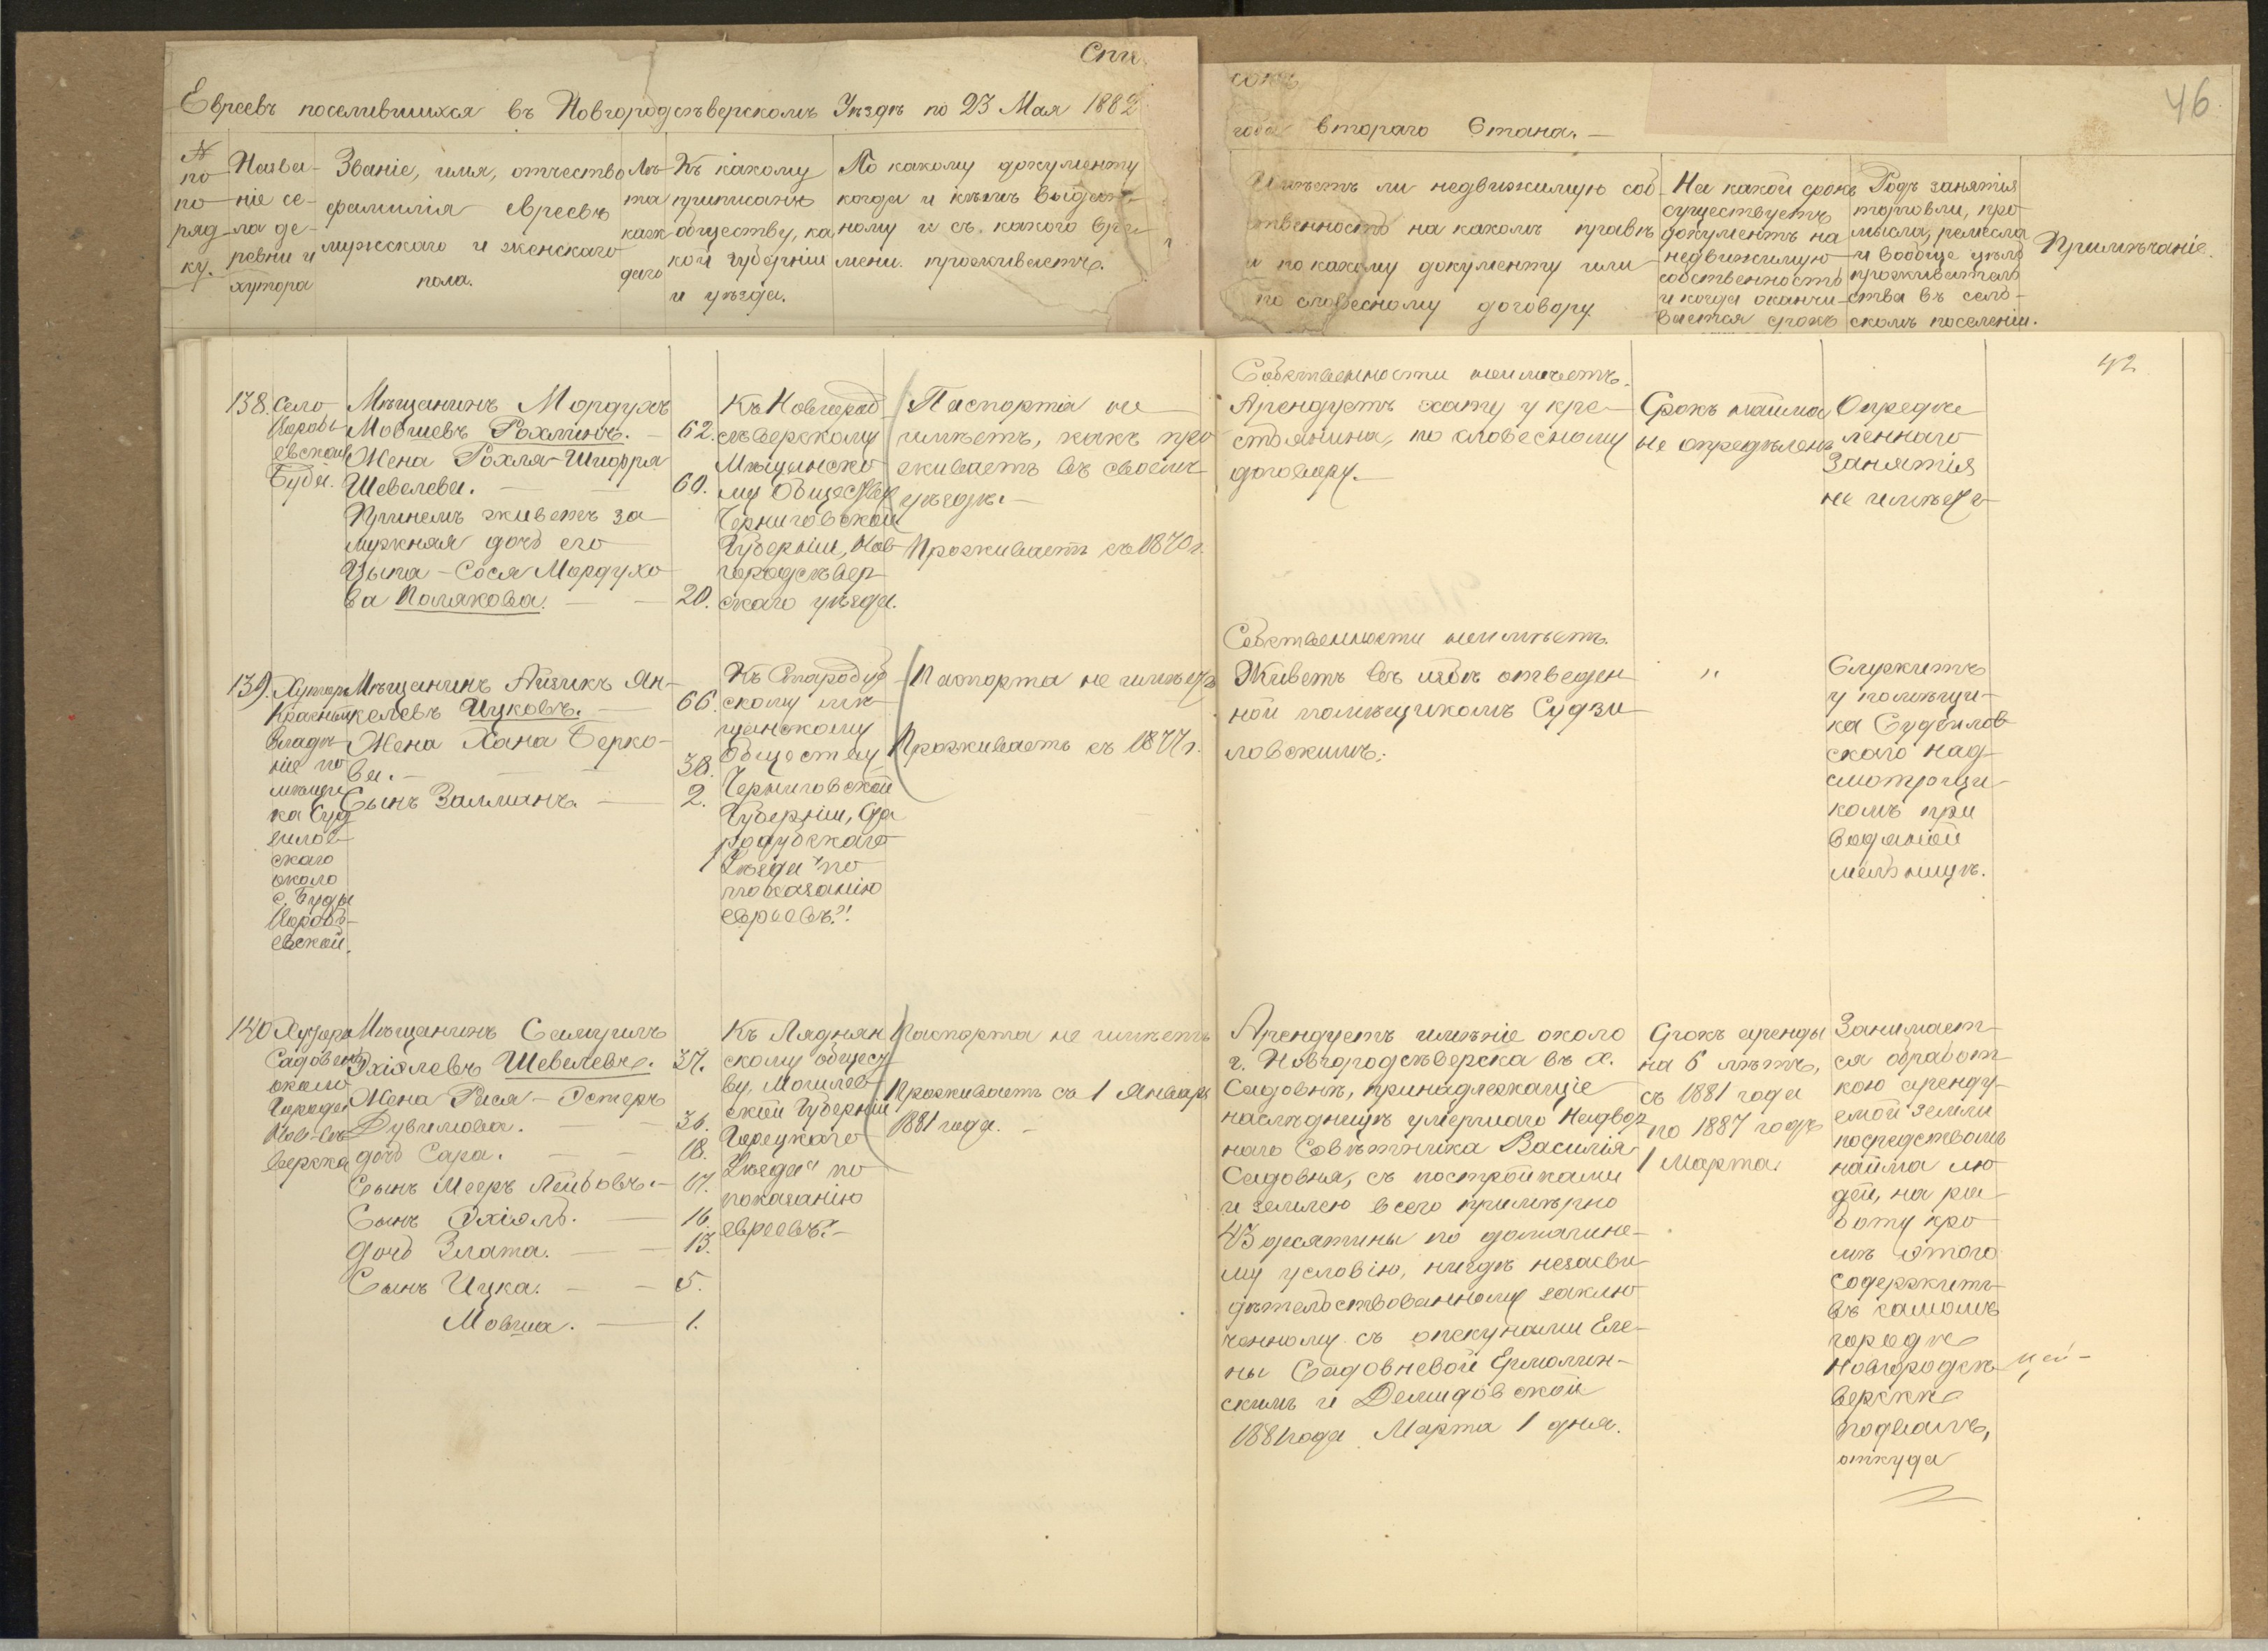 Спи
сокъ
46
Евреевъ поселившихся въ Новгородсѣверскомъ Уѣздѣ по 23 Мая 1882
года втораго Стана. —
№
по
по
ряд
ку.
Назва-
ніе се-
ла де-
ревни и
хутора
Званіе, имя, отчество
фамилія евреевъ
мужскаго и женскаго
пола.
Лѣ
та
каж
даго
Къ какому
приписанъ
обществу, ка
кой губерніи
и уѣзда.
По какому документу
когда и кѣмъ выдан-
ному и съ какого вре
мени проживаетъ.
Имѣетъ ли недвижимую соб
ственность на какомъ правѣ
и по какому документу или
по словесному договору
На какой срокъ
существуетъ
документъ на
недвижимую
собственность
и когда оканчи-
вается срокъ
Родъ занятія
торговли, про
мысла, ремесла
и вообще цѣль
проживатель
ства въ сель-
скомъ поселеніи.
Примѣчаніе.
42
138.
Село
Воробь
евская
Буда.
Мѣщанинъ Мордухъ
Мовшевъ Рохлинъ. — 62.
Жена Рохля-Шифра
Шевелева. — 60.
При немъ живетъ за
мужняя дочь его
Цыпа-Сося Мордухо
ва Полякова. — 20.
Къ Новгород
сѣверскому
Мѣщанско
му Обществу
Черниговской
Губерніи, Нов
городсѣвер
скаго уѣзда.
Паспорта не
имѣетъ, какъ про
живаетъ въ своемъ
уѣздѣ. —
Проживаетъ съ 1870 г.
Собственности неимѣетъ.
Арендуетъ хату у кре-
стьянина, по словесному
договору. —
Срокъ найма
не опредѣленъ
Опредѣ
леннаго
занятія
не имѣетъ
139.
Хуторъ
Красный
владѣ
ніе по
мѣщи
ка Суд
зилов
скаго
около
с. Буды
Вороб-
евской.
Мѣщанинъ Айзикъ Ян-
келевъ Ицковъ. — 66.
Жена Хана Берко-
ва. — 38.
Сынъ Залманъ. — 2.
Къ Стародуб
скому мѣ
щанскому
Обществу
Черниговской
Губерніи, Ста
родубскаго
Уѣзда „по
показанію
евреевъ".
Паспорта не имѣетъ
Проживаетъ съ 1877 г.
Собственности неимѣетъ.
Живетъ въ избѣ отведен
ной помѣщикомъ Судзи
ловскимъ.
„
Служитъ
у помѣщи-
ка Судзилов
скаго над
смотрщи-
комъ при
водяной
мельницѣ.
140
Хуторъ
Садовень
около
Города
Нов-Сѣ
верска
Мѣщанинъ Самуилъ
Эхіялевъ Шевелевъ. — 37.
Жена Рися-Эстеръ
Дувимова. — 36.
дочь Сара. — 18.
Сынъ Мееръ Лейбовъ. — 17.
Сынъ Эхіялъ. — 16.
дочь Злата. — 13.
Сынъ Ицка. — 5.
Мовша. — 1.
Къ Ляднян
скому общест
ву, Могилев
ской Губерніи
Горецкаго
Уѣзда „по
показанію
евреевъ". —
Паспорта не имѣетъ
Проживаетъ съ 1 Января
1881 года. —
Арендуетъ имѣніе около
г. Новгородсѣверска въ х.
Садовнѣ, принадлежащіе
наслѣдницѣ умершаго Надвор
наго Совѣтника Василія
Садовня, съ постройками
и землею всего примѣрно
43 десятины по домашне-
му условію, нигдѣ незасви
дѣтельствованному заклю
ченному съ опекунами Еле-
ны Садовневой Ермолин-
скимъ и Демидовской
1881 года Марта 1 дня.
Срокъ аренды
на 6 лѣтъ,
съ 1881 года
по 1887 годъ
1 Марта.
Занимает
ся обработ
кою аренду-
емой земли
посредствомъ
найма лю
дей, на ра
боту кро
мѣ этого
содержитъ
въ самомъ
городѣ
Новгородсѣ
верскѣ
подвалъ,
откуда